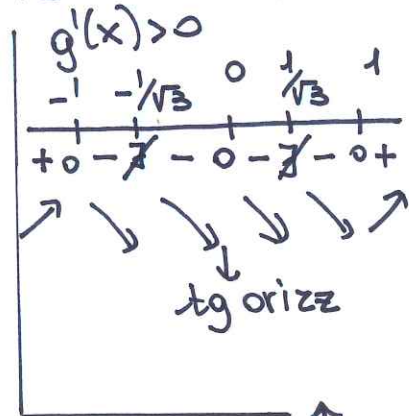 g'(x)>0
-1 -1/√3 0 1/√3 1
+ 0 - ∄ - 0 - ∄ - 0 +
tg orizz